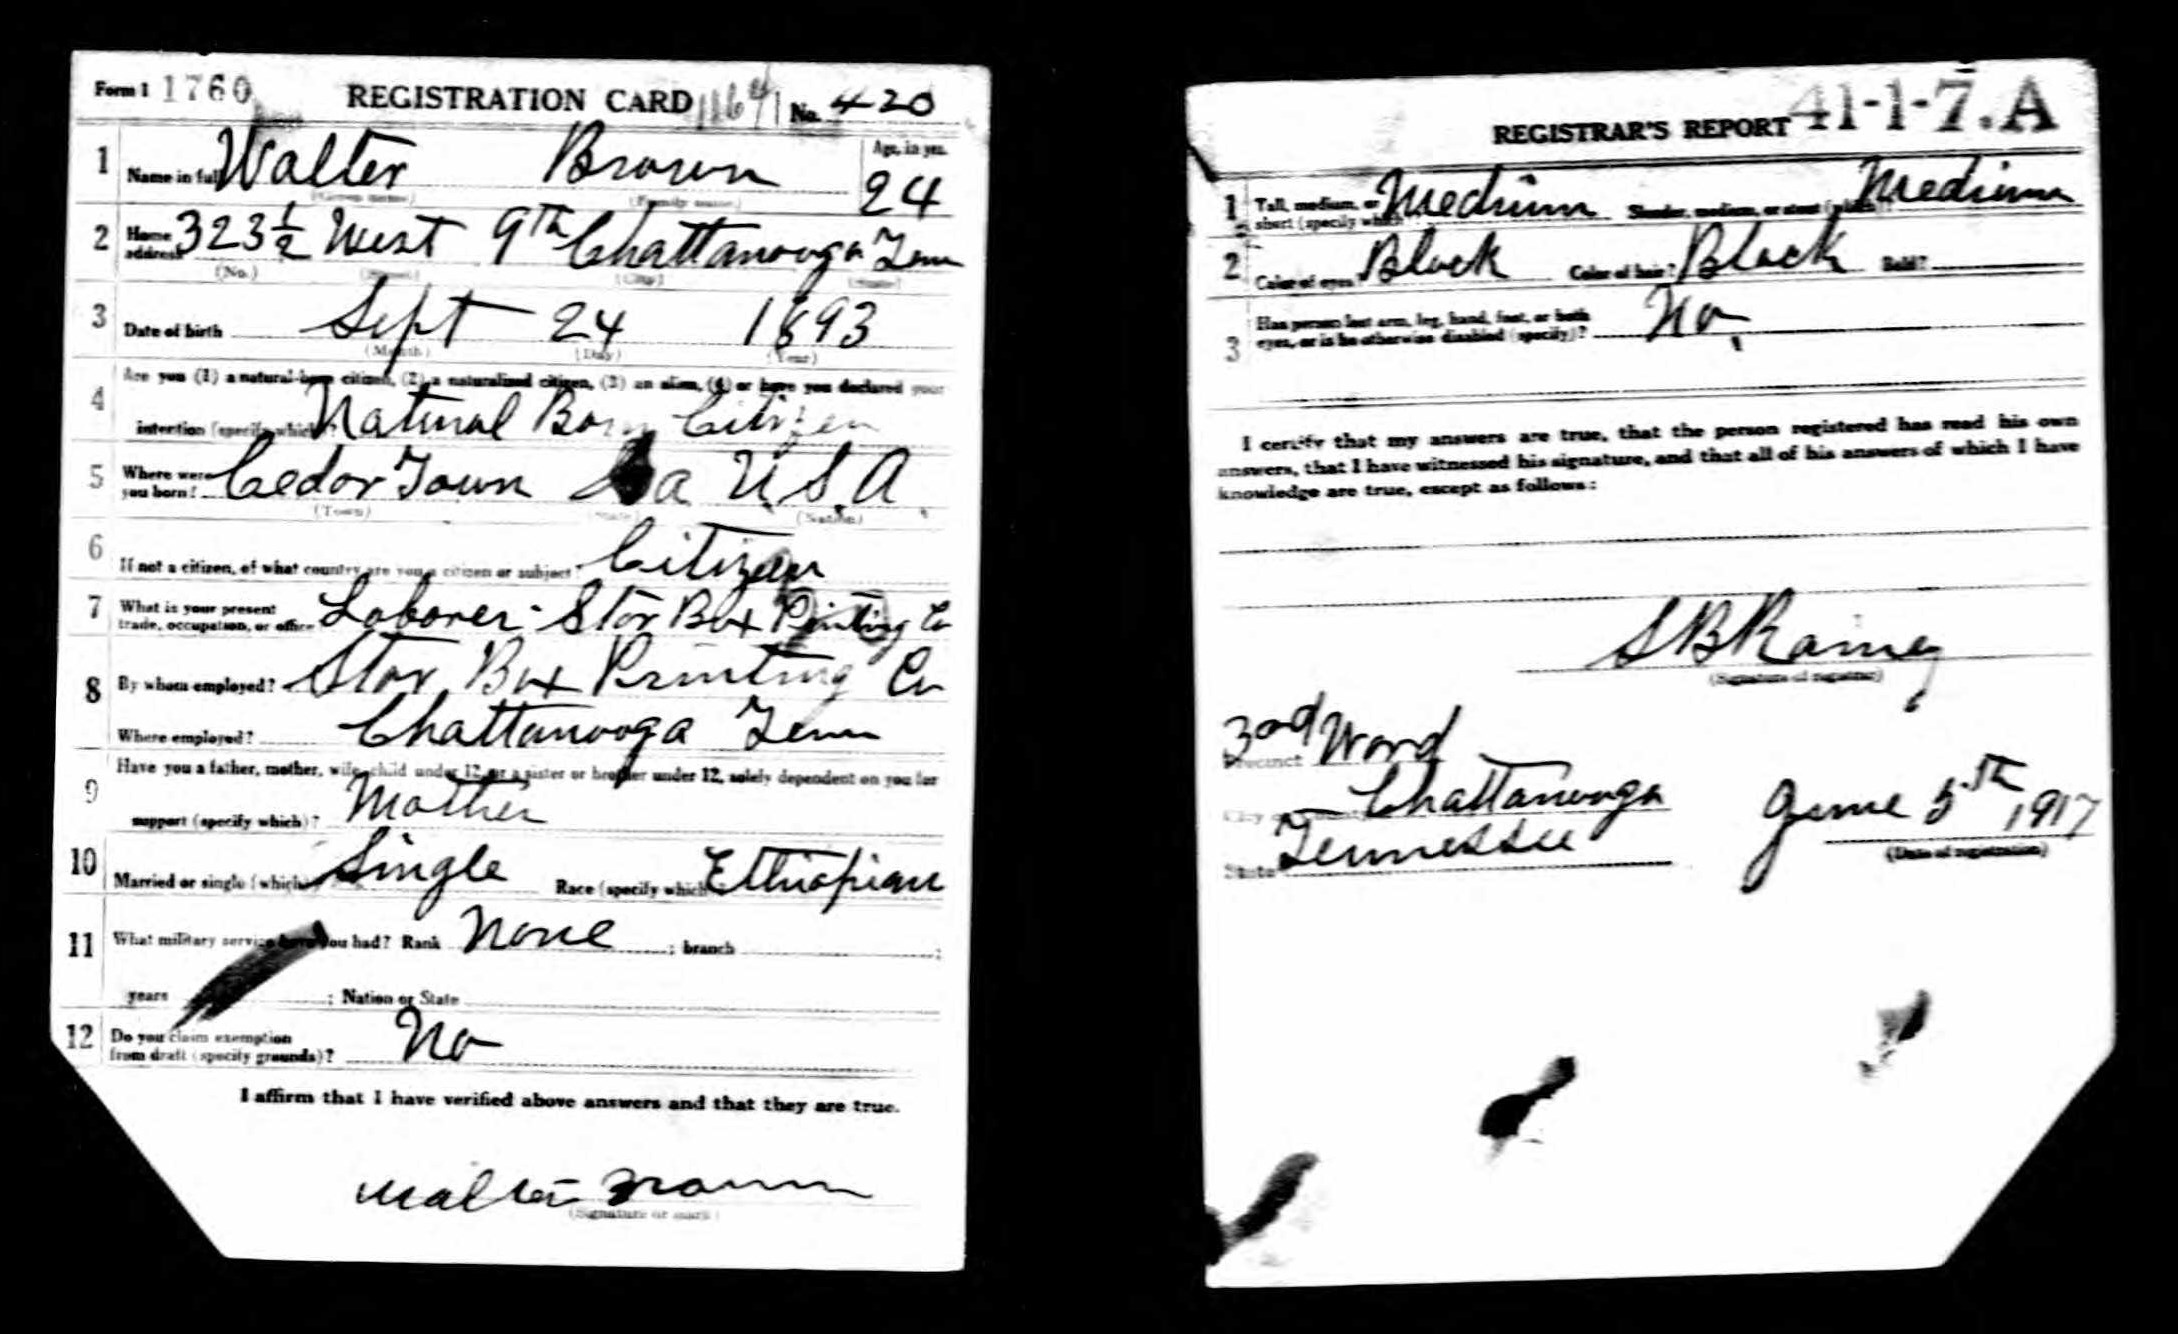 Form 1 1760 REGISTRATION CARD No. 420
1 Name in full Walter Brown Age, in yrs. 24
(Given name) (Family name)
2 Home address 323½ West 9th Chattanooga Tenn
(No.) (Street) (City) (State)
3 Date of birth Sept 24 1893
(Month) (Day) (Year)
4 Are you (1) a natural-born citizen, (2) a naturalized citizen, (3) an alien, (4) or have you declared your
intention (specify which)? Natural Born Citizen
5 Where were you born? Cedar Town Ga U.S.A
(Town) (State) (Nation)
6 If not a citizen, of what country are you a citizen or subject? Citizen
7 What is your present trade, occupation, or office Laborer - Star Box Printing Co
8 By whom employed? Star Box Printing Co
Where employed? Chattanooga Tenn
9 Have you a father, mother, wife, child under 12, or a sister or brother under 12, solely dependent on you for
support (specify which)? Mother
10 Married or single (which) Single Race (specify which) Ethiopian
11 What military service have you had? Rank None ; branch ;
years ; Nation or State
12 Do you claim exemption from draft (specify grounds)? No
I affirm that I have verified above answers and that they are true.
Walter Brown
(Signature or mark)
REGISTRAR'S REPORT 41-1-7.A
1 Tall, medium, or short (specify which)? Medium Slender, medium, or stout (which)? Medium
2 Color of eyes? Black Color of hair? Black Bald?
3 Has person lost arm, leg, hand, foot, or both
eyes, or is he otherwise disabled (specify)? No
I certify that my answers are true, that the person registered has read his own
answers, that I have witnessed his signature, and that all of his answers of which I have
knowledge are true, except as follows:
S B Rainey
(Signature of registrar)
Precinct 3rd Ward
City or County Chattanooga
State Tennessee
June 5th, 1917
(Date of registration)